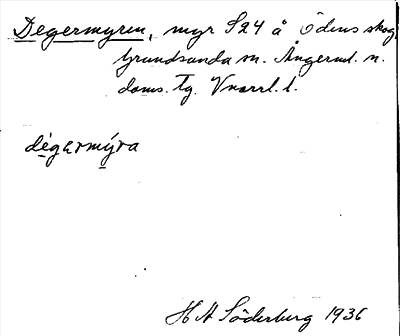 Degermyren, myr S24 å Ödens skog,
Grundsunda sn. Ångerml. n.
doms. tg. Vnorrl. l.
dègermýra
H A Söderberg 1936